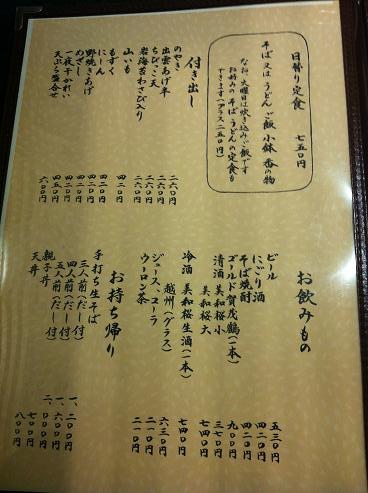 日替り定食 七五〇円
そば又はうどん ご飯 小鉢 香の物
なお、火曜日は炊き込みご飯です
お好みのそば・うどんの定食も
できます(プラス二五〇円)
付き出し
のやき 二六〇円
出雲あげ半 二六〇円
ちびっこ天 二六〇円
岩海苔わさび入り 二六〇円
山いも 四二〇円
もずく 四二〇円
にしん 四二〇円
野焼きあげ 四五〇円
めざし 四五〇円
一夜干かれい 五二〇円
天ぷら盛合せ 六〇〇円
お飲みもの
ビール 五三〇円
にごり酒 四二〇円
そば焼酎 四二〇円
ゴールド賀茂鶴(一本) 九〇〇円
清酒 美和桜小 三七〇円
美和桜大 七四〇円
冷酒 美和桜生酒(一本) 七四〇円
越州(グラス) 六三〇円
ジュース、コーラ 二一〇円
ウーロン茶 二一〇円
お持ち帰り
手打ち生そば
三人前(だし付) 一、二〇〇円
四人前(だし付) 一、六〇〇円
五人前(だし付) 二、〇〇〇円
親子丼 七〇〇円
天丼 八〇〇円